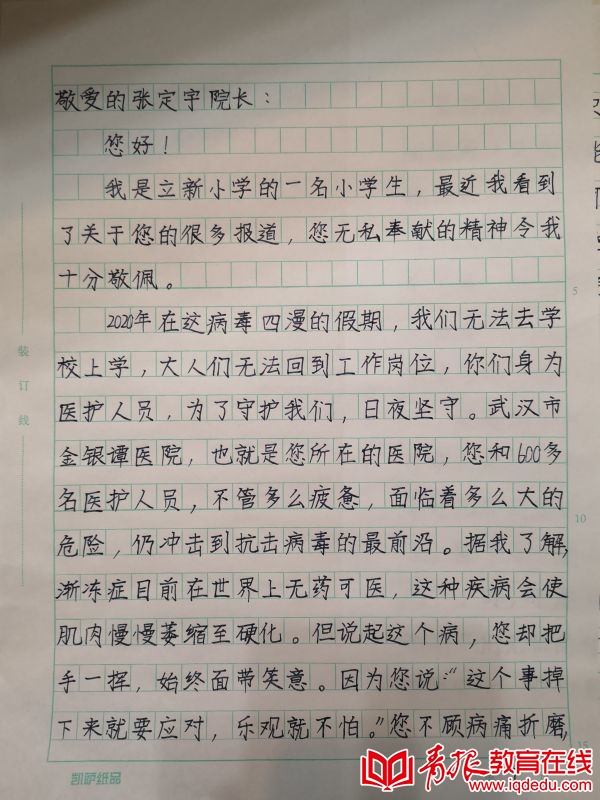 敬爱的张定宇院长：
您好！
我是立新小学的一名小学生，最近我看到
了关于您的很多报道，您无私奉献的精神令我
十分敬佩。
2020年在这病毒四漫的假期，我们无法去学
校上学，大人们无法回到工作岗位，你们身为
医护人员，为了守护我们，日夜坚守。武汉市
金银谭医院，也就是您所在的医院，您和600多
名医护人员，不管多么疲惫，面临着多么大的
危险，仍冲击到抗击病毒的最前沿。据我了解，
渐冻症目前在世界上无药可医，这种疾病会使
肌肉慢慢萎缩至硬化。但说起这个病，您却把
手一挥，始终面带笑意。因为您说：“这个事掉
下来就要应对，乐观就不怕。”您不顾病痛折磨，
装订线
5
10
15
凯萨纸品
青报教育在线
www.iqdedu.com